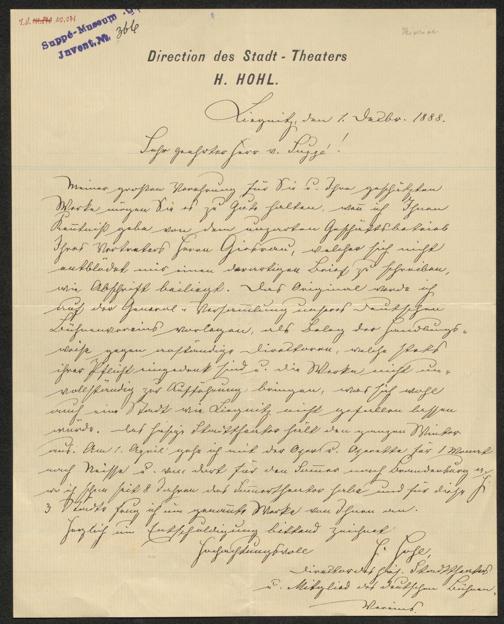 Suppé-Museum
Invent. No. 366
Direction des Stadt-Theaters
H. HOHL.
Liegnitz, den 1. Decbr. 1888.
Sehr geehrter Herr v. Suppé!
Meiner großen Verehrung für Sie u. Ihre geschätzten
Werke mögen Sie es zu Gute halten, wenn ich Ihnen
Kentniß gebe von dem Geschäftsbetrieb
Ihres Vertreters Herrn welcher sich nicht
entblödet mir einen derartigen Brief zu schreiben,
wie Abschrift beiliegt. Das Original werde ich
auf der General-Versammlung unseres deutschen
Bühnenvereins vorlegen, als Beleg der Handlungs-
weise gegen anständige Directoren, welche stets
ihrer Pflicht eingedenk sind u. die Werke nicht un-
vollständig zur Aufführung bringen, was sich wohl
auch eine Stadt wie Liegnitz nicht gefallen lassen
würde. Das hiesige Stadttheater hält den ganzen Winter
aus. Am 1. April gehe ich mit der Oper u. Operette für 1 Monat
nach Neisse u. von dort für den Sommer nach Brandenburg
wo ich schon seit 8 Jahren das Sommertheater habe und für diese
3 Städte ich um genannte Werke von Ihnen an.
Herzlich um Entschuldigung bittend zeichnet
Hochachtungsvoll H. Hohl,
Director des hies. Stadttheaters
u. Mitglied des deutschen Bühnen-
Vereins.